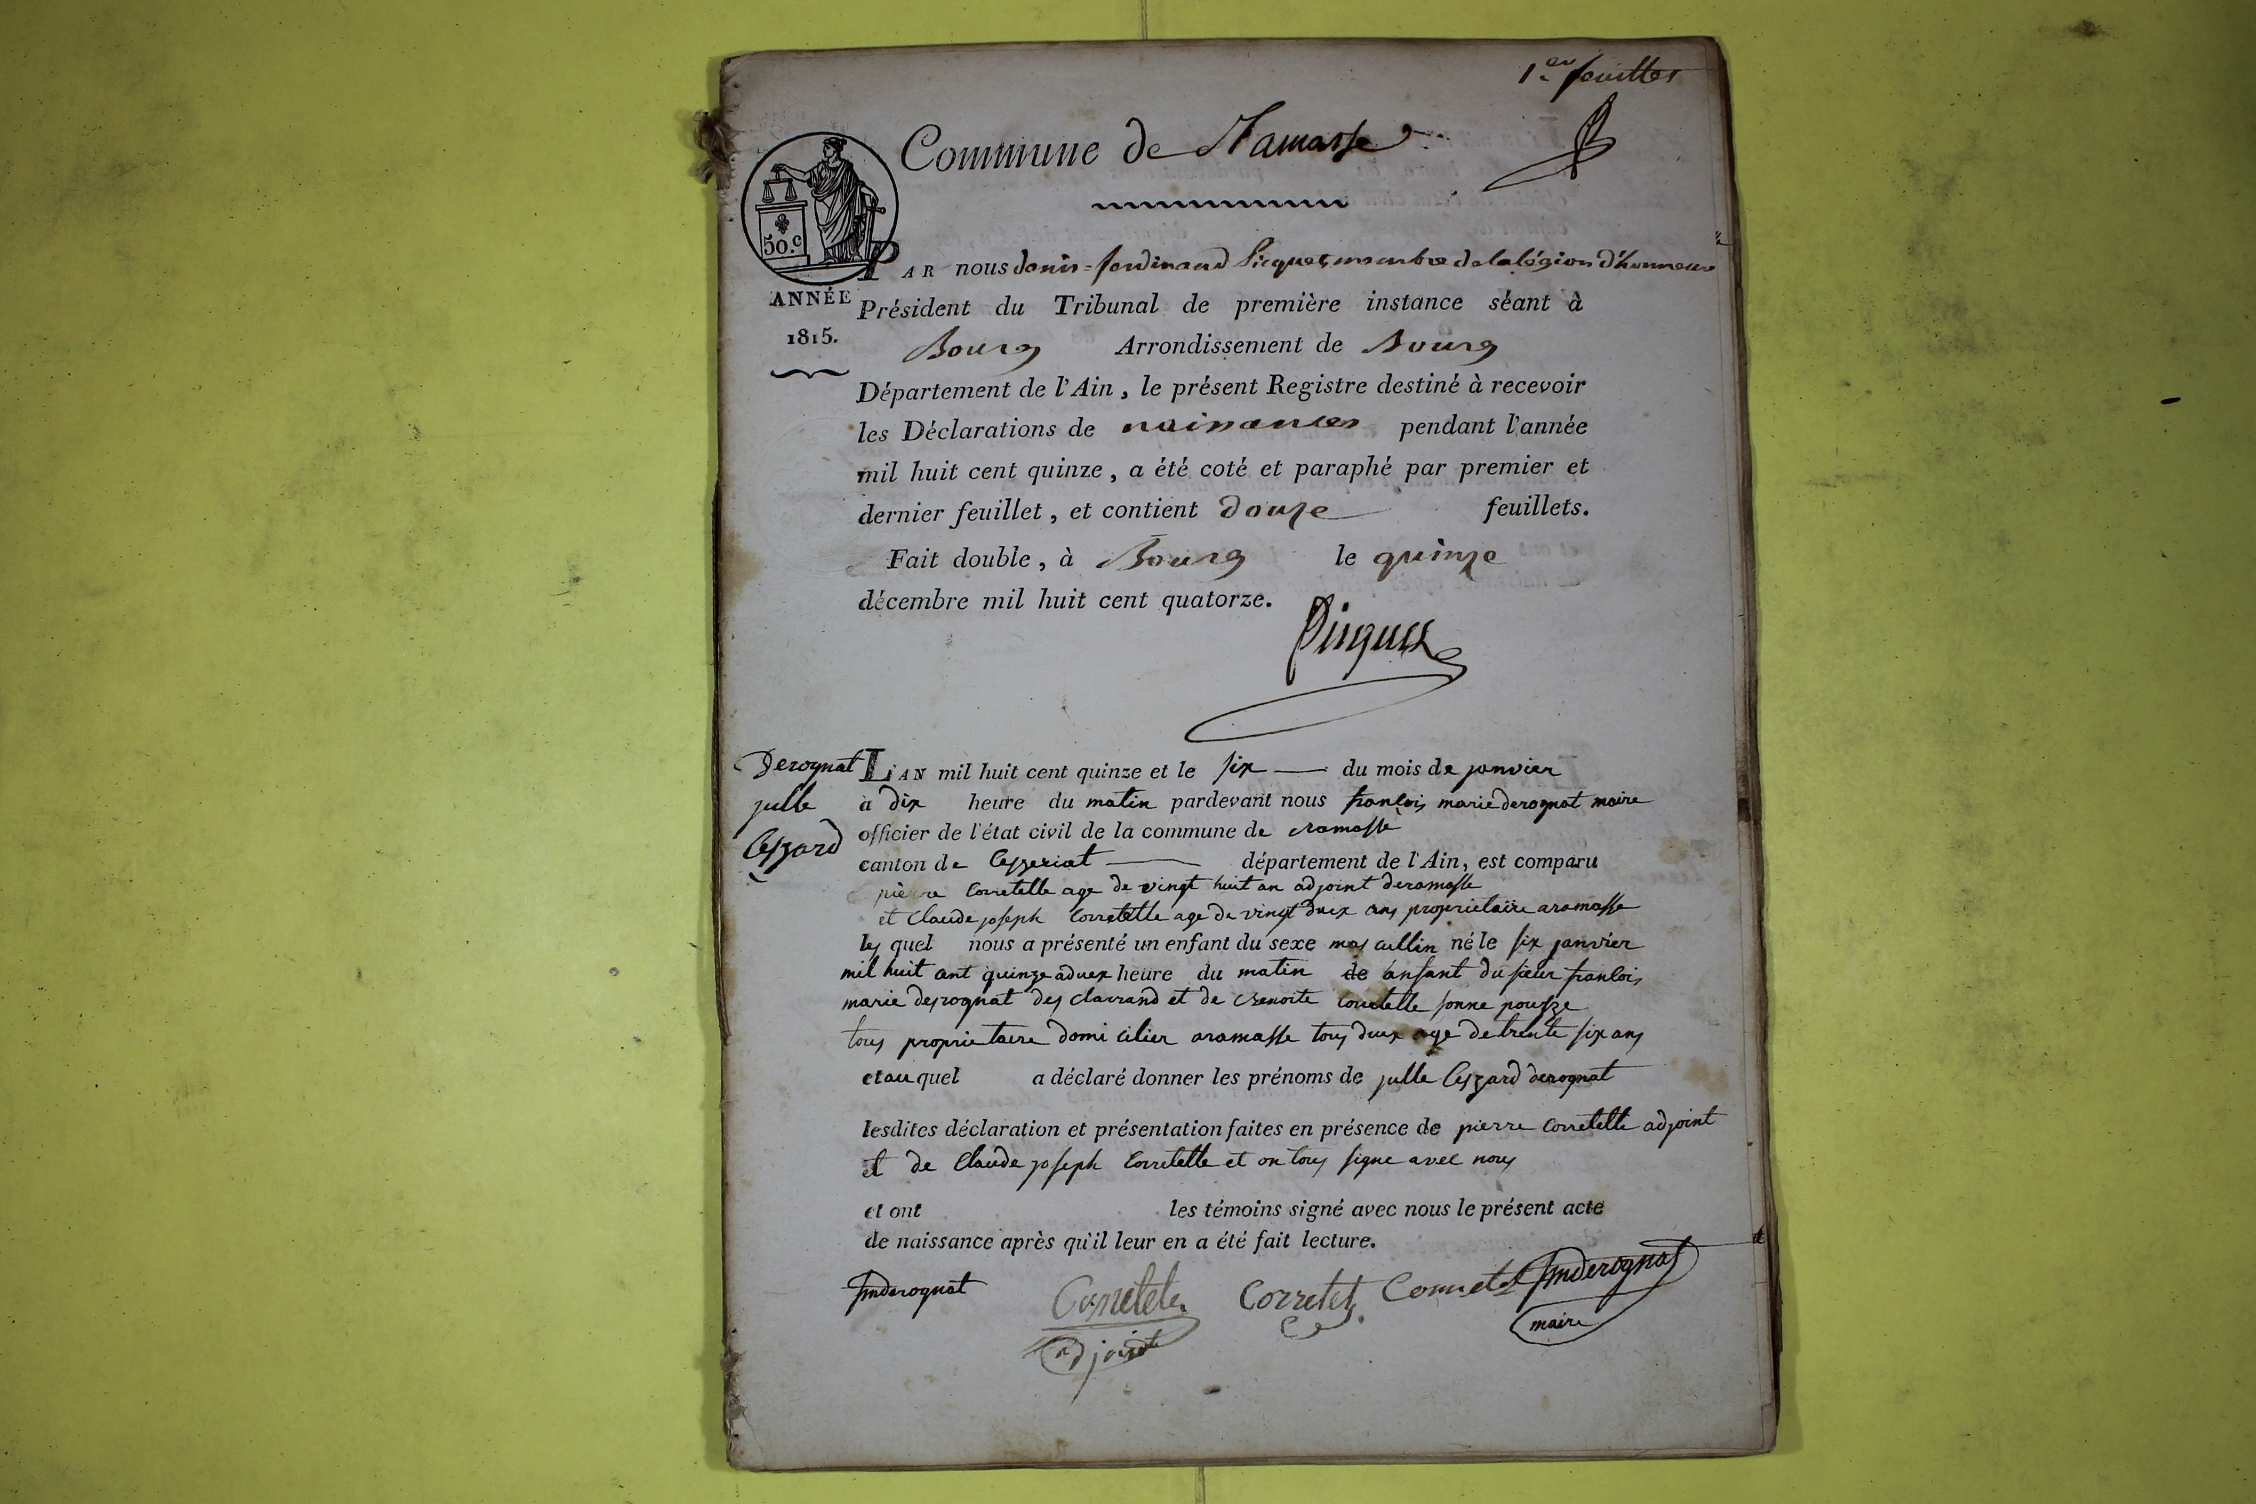 1er feuillet
Commune de Ramasse
50.c
PAR nous denis=ferdinand Picquet, membre de la légion d'honneur
ANNÉE
1815.
Président du Tribunal de première instance séant à
Bourg Arrondissement de Bourg
Département de l'Ain, le présent Registre destiné à recevoir
les Déclarations de naissances pendant l'année
mil huit cent quinze, a été coté et paraphé par premier et
dernier feuillet, et contient douze feuillets.
Fait double, à Bourg le quinze
décembre mil huit cent quatorze.
Picquet
Derognat
julle
Ceszard
L'AN mil huit cent quinze et le six du mois de janvier
à dix heure du matin pardevant nous francois marie derognat maire
officier de l'état civil de la commune de ramasse
canton de Ceszeriat département de l'Ain, est comparu
pierre Corretelle age de vingt huit an adjoint deramasse
et Claude joseph Corretelle age de vingt duex ans proprietaire aramasse
les quel nous a présenté un enfant du sexe mas cullin né le six janvier
mil huit cent quinze aduex heure du matin de enfant du sieur francois
marie desrognat des clavrand et de Benoite Corretelle sonne pousze
tous proprietaere domi cilier aramasse tous duex age de trente six ans
et au quel a déclaré donner les prénoms de julle Ceszard derognat
lesdites déclaration et présentation faites en présence de pierre Corretelle adjoint
et de Claude joseph Corretelle et on tous signe avec nous
et ont les témoins signé avec nous le présent acte
de naissance après qu'il leur en a été fait lecture.
fmderognat Corretele Corretet Corret fmderognat
adjoint maire